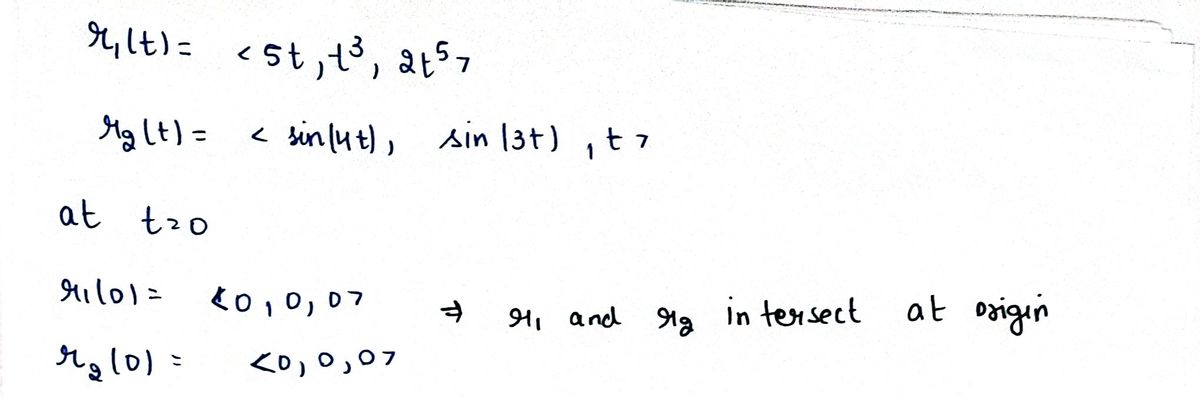 r₁(t) = <5t, t³, 2t⁵>
r₂(t) = < sin(4t), sin(3t), t>
at t=0
r₁(0) = <0, 0, 0> ⇒ r₁ and r₂ intersect at origin
r₂(0) = <0, 0, 0>